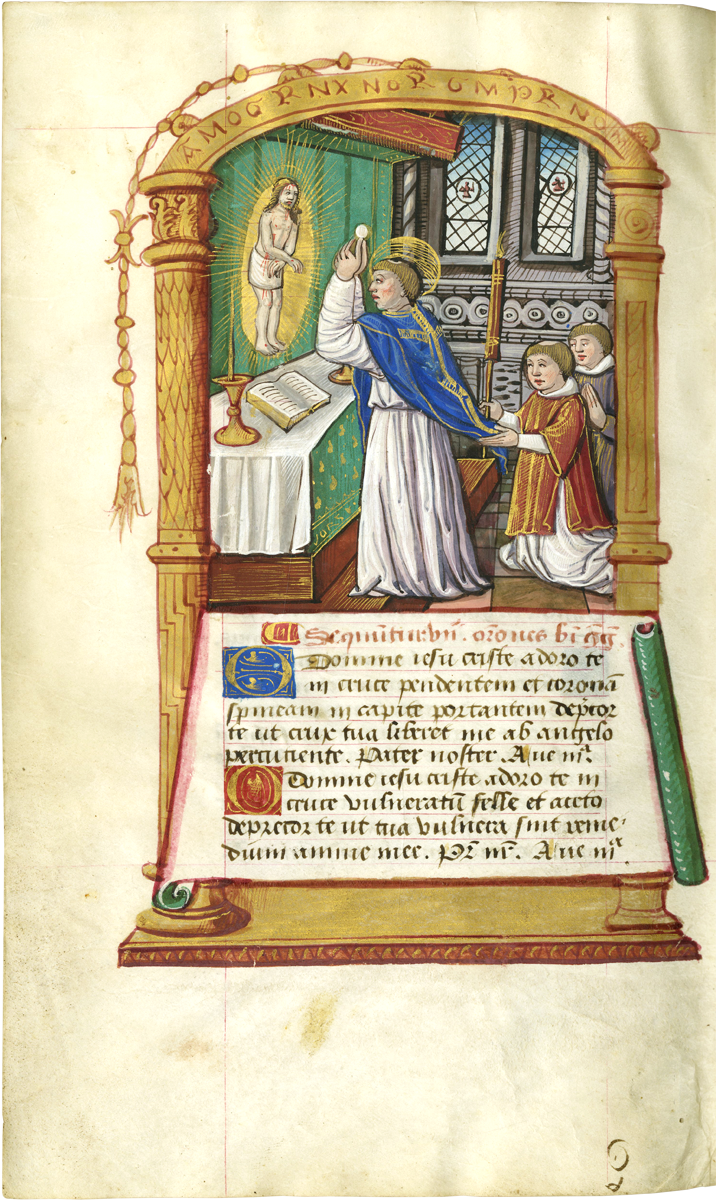 AMOGRNXNORGMPRNOM
Sequũtur vii. orōnes bī gg̃.
O Domine iesu criste adoro te
in cruce pendentem et coronā
spineam in capite portantem dep̃cor
te ut crux tua liberet me ab angelo
percutiente. Pater noster. Aue mr̃.
O Domine iesu criste adoro te in
cruce vulneratū felle et aceto
deprecor te ut tua vulnera sint reme-
dium anime mee. Pr̃ nr̃. Aue mr̃.